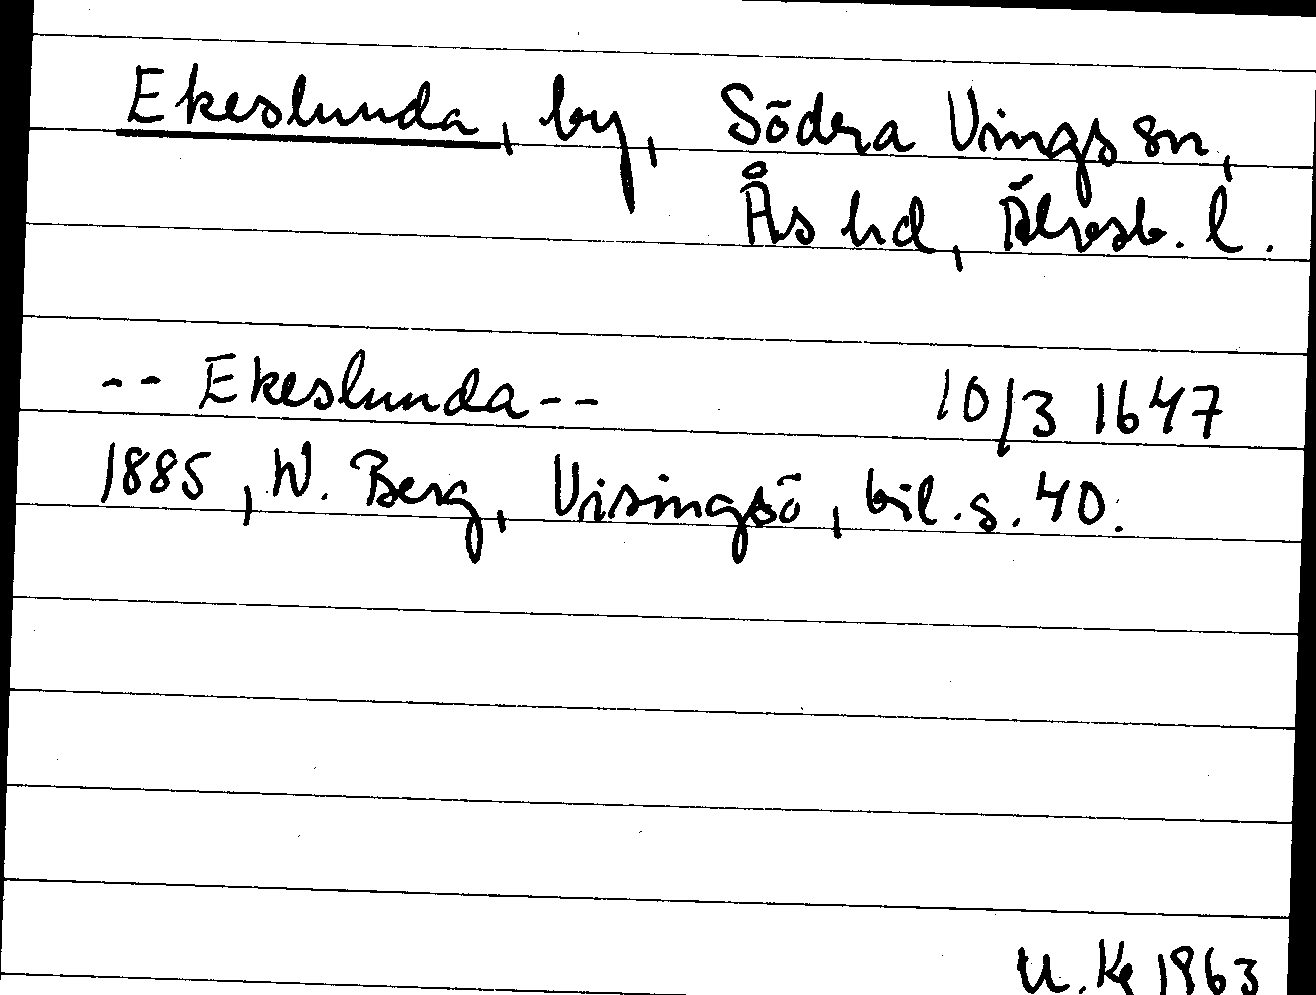 Ekeslunda, by, Södra Vings sn,
Ås hd, Älvsb. l.
-- Ekeslunda -- 10/3 1647
1885, W. Berg, Visingsö, bil. s. 40.
U.Ke 1963